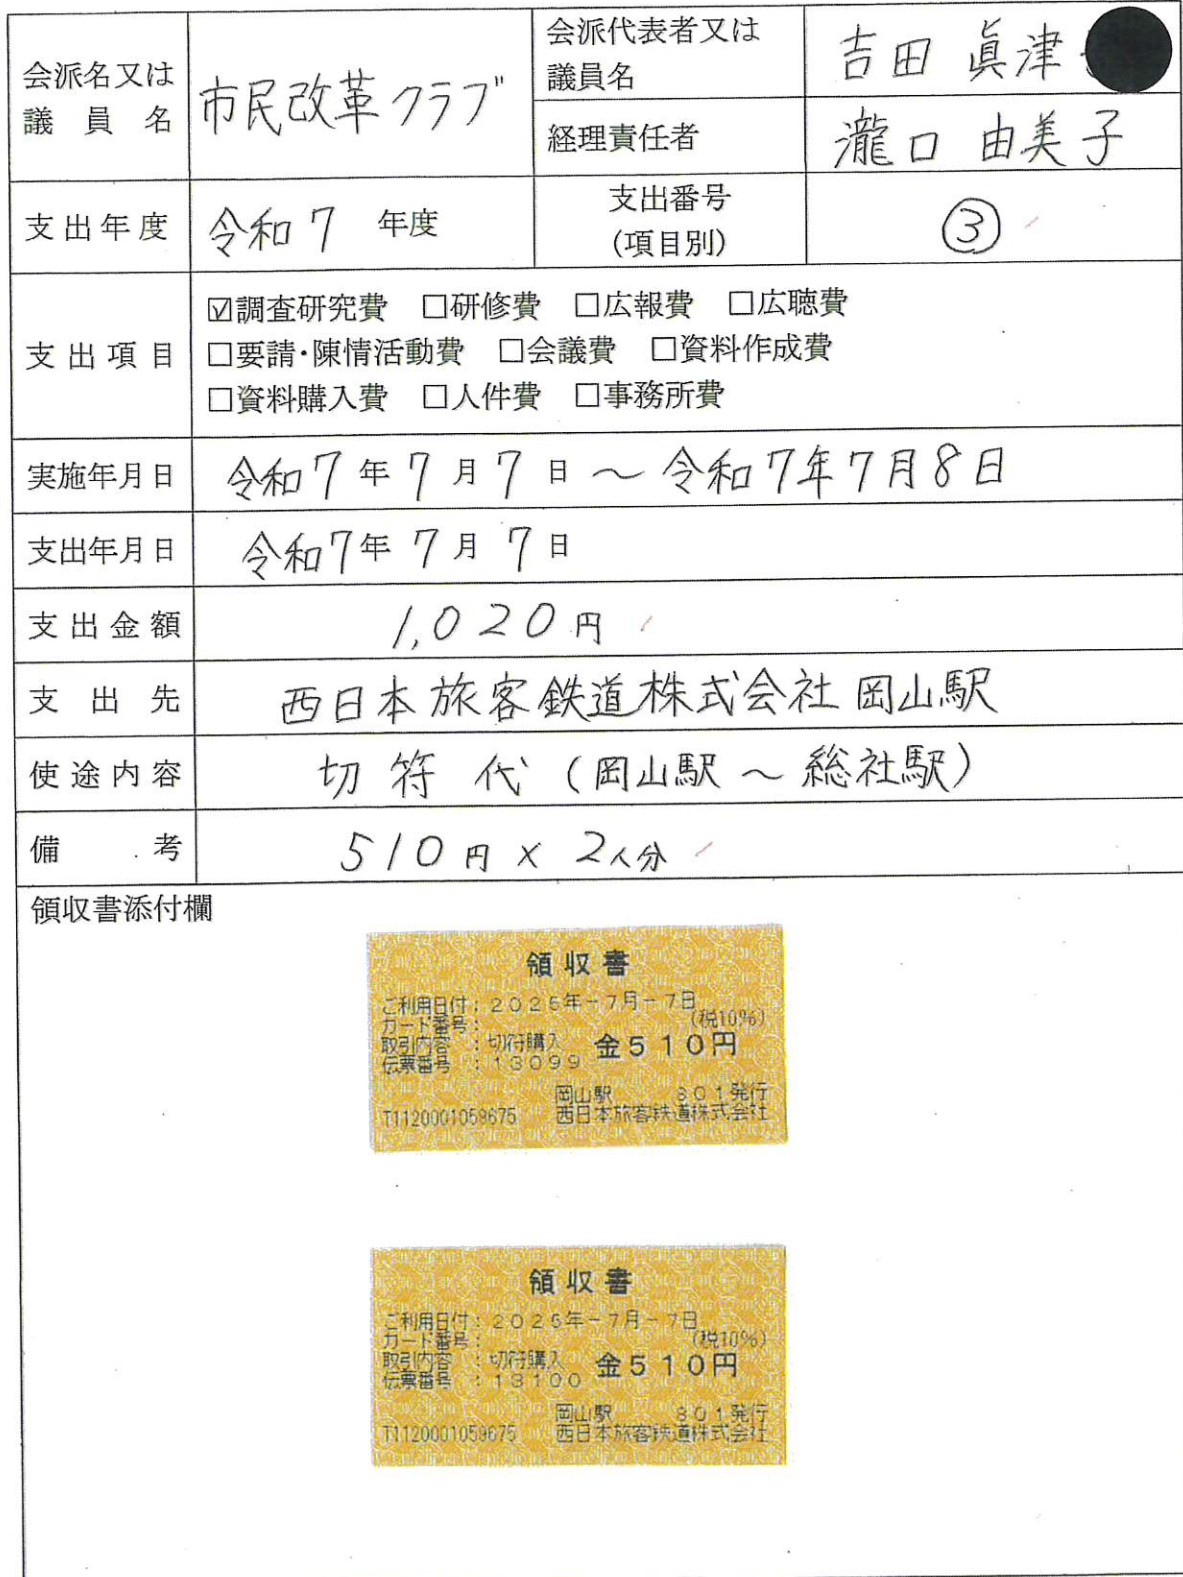 会派名又は
議員名
市民改革クラブ
会派代表者又は
議員名
吉田 眞津
経理責任者
瀧口 由美子
支出年度
令和7 年度
支出番号
(項目別)
③
支出項目
☑調査研究費 □研修費 □広報費 □広聴費
□要請・陳情活動費 □会議費 □資料作成費
□資料購入費 □人件費 □事務所費
実施年月日
令和7年7月7日 ~ 令和7年7月8日
支出年月日
令和7年7月7日
支出金額
1,020円
支出先
西日本旅客鉄道株式会社 岡山駅
使途内容
切符代 (岡山駅 ~ 総社駅)
備考
510円 × 2人分
領収書添付欄
領収書
ご利用日付:2025年-7月-7日
(税10%)
カード番号:
取引内容 :切符購入 金510円
伝票番号 :13099
岡山駅 801発行
T1120001059675 西日本旅客鉄道株式会社
領収書
ご利用日付:2025年-7月-7日
(税10%)
カード番号:
取引内容 :切符購入 金510円
伝票番号 :13100
岡山駅 801発行
T1120001059675 西日本旅客鉄道株式会社